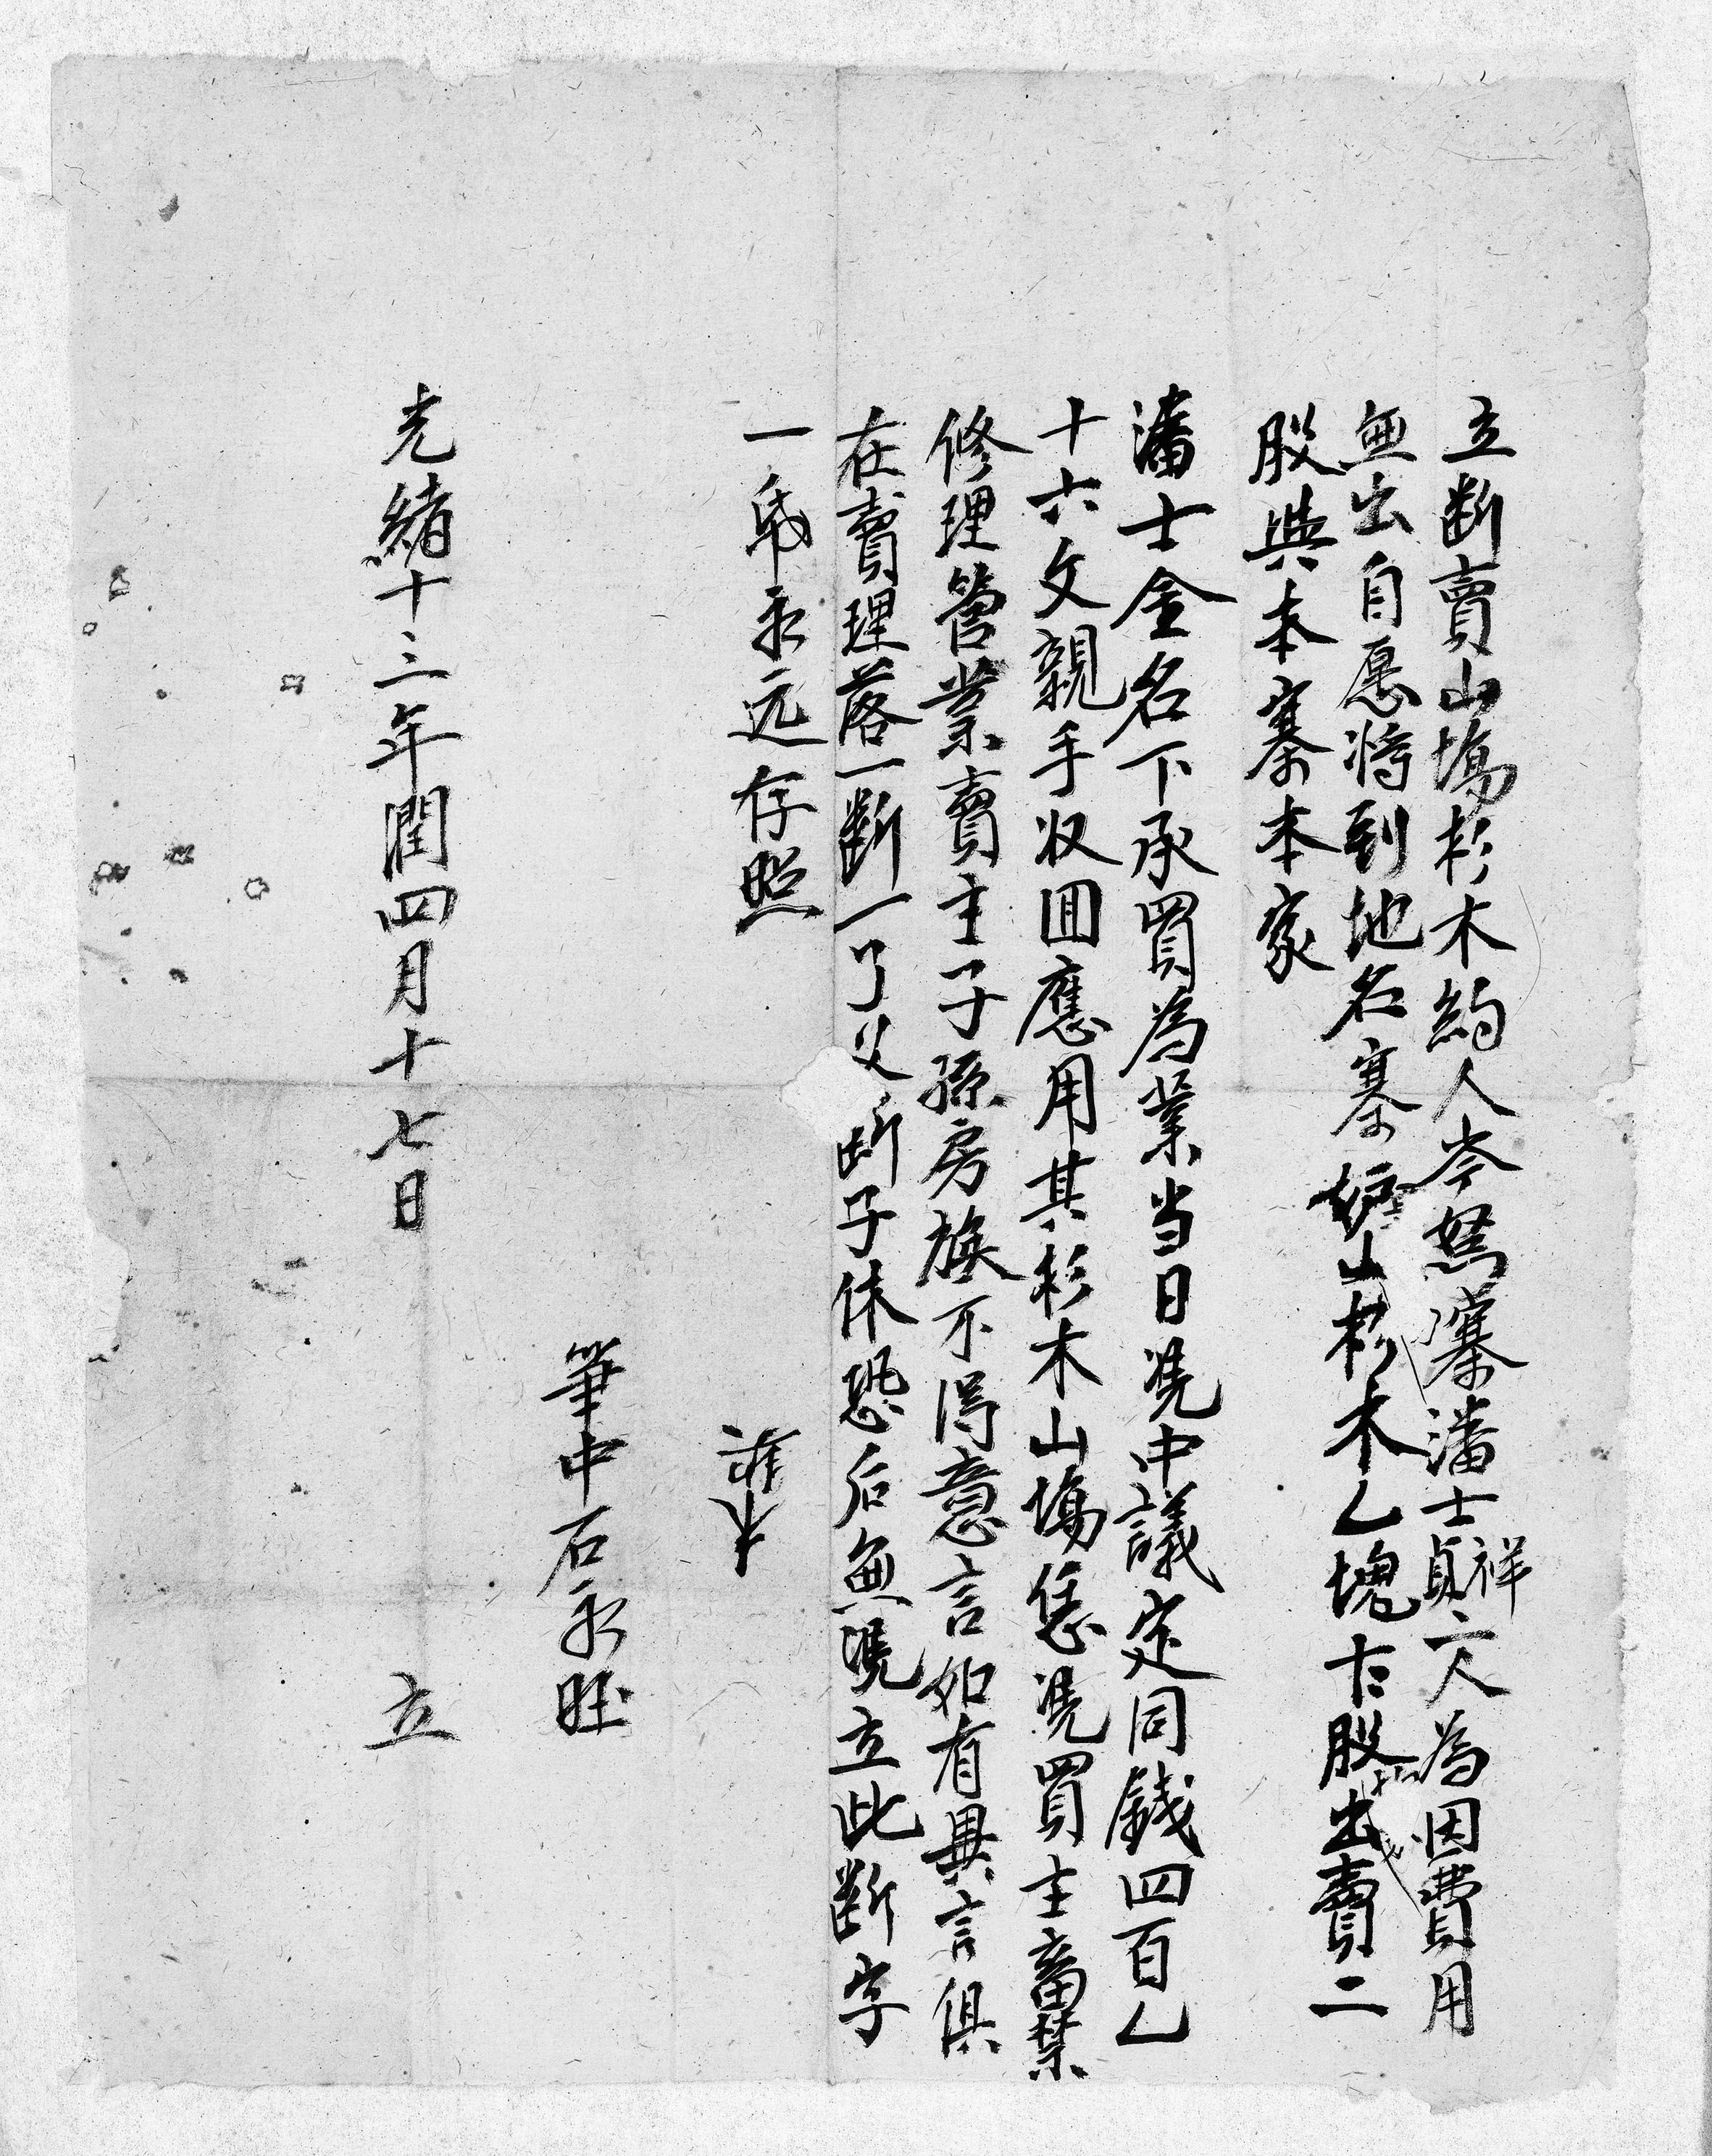 立断賣山塲杉木約人岑努寨潘士貞祥二人為因費用
無出自愿将到地名寨 山杉木乙塊十股出賣二
股與本寨本家
潘士金名下承買為業当日凴中議定同錢四百乙
十六文親手收囬應用其杉木山塲恁凴買主畜禁
修理管業賣主子孫房族不淂意言如有異言俱
在賣理落一断一了父断子休恐后無凴立此断字
一帋永远存照
筆中石永旺
光緒十三年閏四月十七日 立